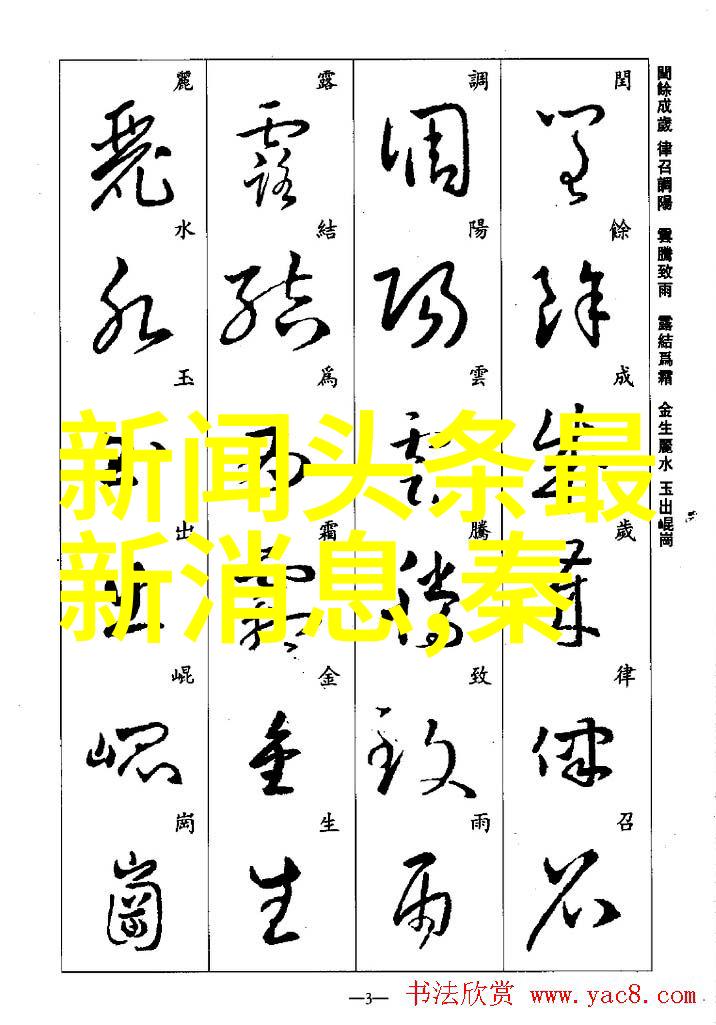 閏餘成歲 律召調陽 雲騰致雨 露結爲霜 金生麗水 玉出崐崗
閏餘成歲律召
調陽雲騰致雨
露結爲霜金生
麗水玉出崐崗
新闻头条最
新消息,秦
—3—
书法欣赏 www.yac8.com